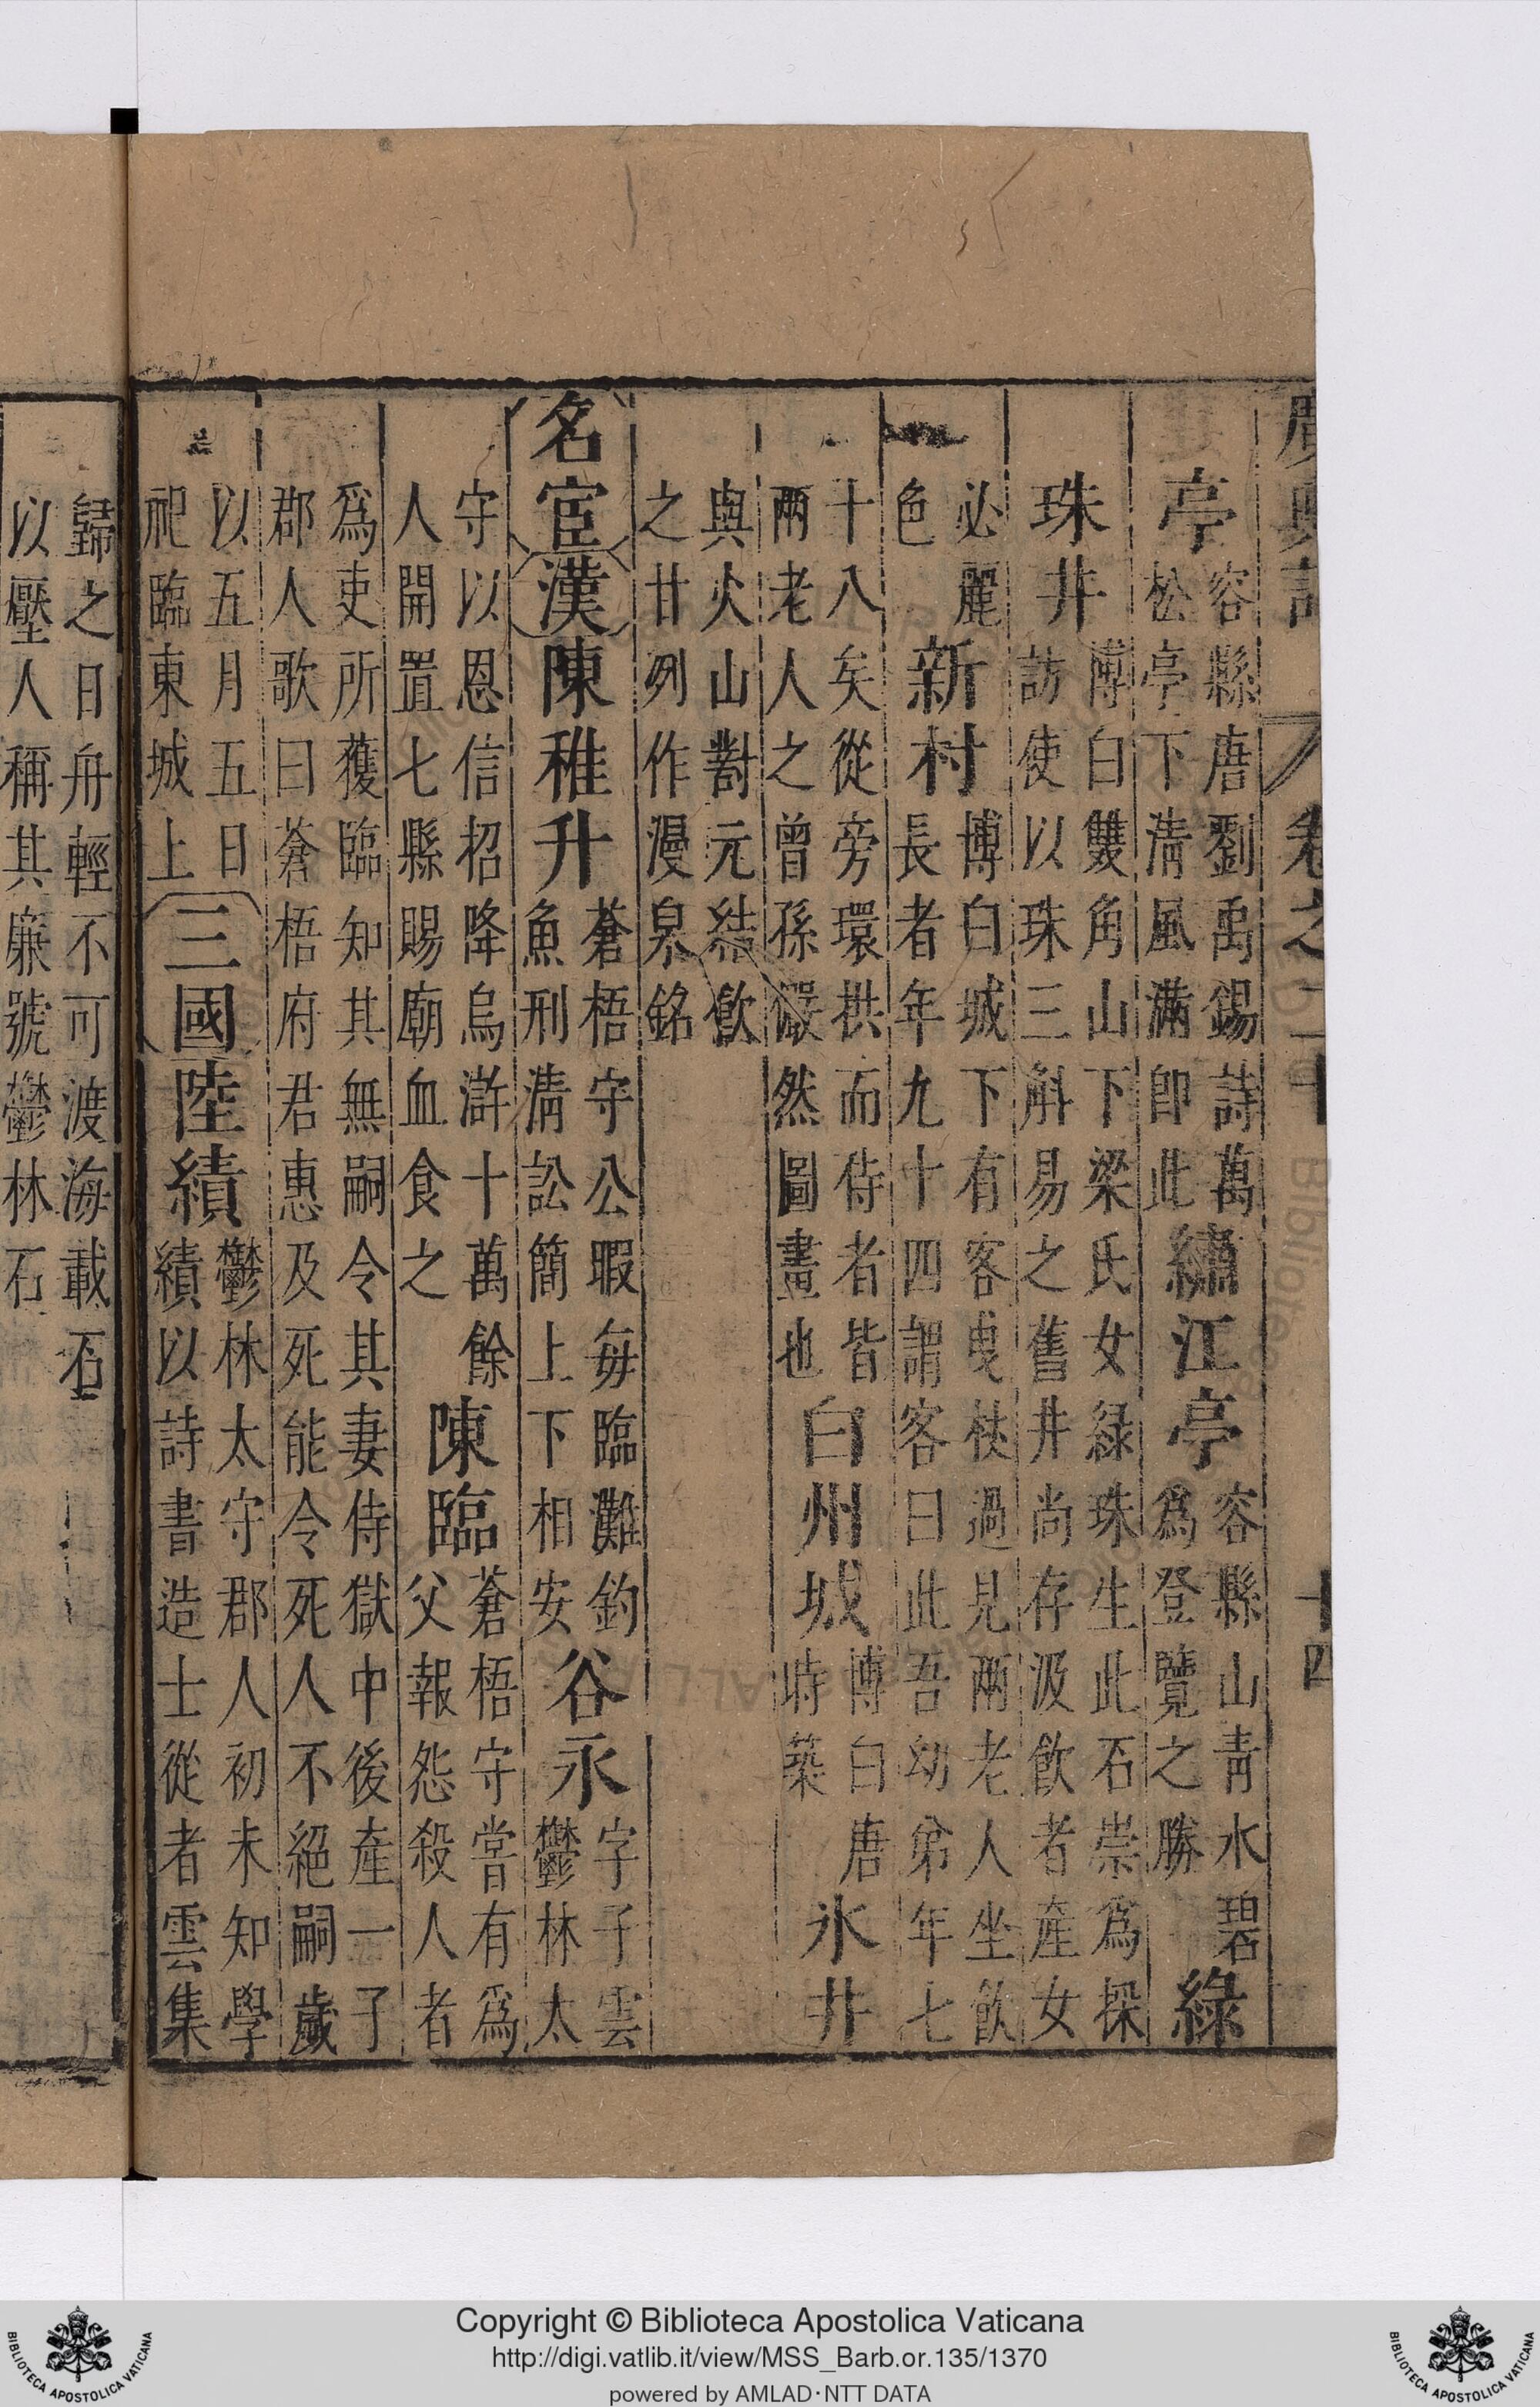 廣輿記 卷之二十 十四
亭容縣唐劉禹錫詩萬松亭下清風滿即此繡江亭容縣山青水碧爲登覽之勝綠
珠井博白雙角山下梁氏女緑珠生此石崇爲採訪使以珠三斛易之舊井尚存汲飲者產女
必麗色新村博白城下有客曳杖過見兩老人坐飲長者年九十四謂客曰此吾幼弟年七
十八矣從旁環拱而侍者皆兩老人之曾孫儼然圖畫也白州城博白唐時築氷井
與火山對元結飲之甘冽作漫泉銘
名宦漢陳稚升蒼梧守公暇每臨灘釣魚刑清訟簡上下相安谷永字子雲鬱林太
守以恩信招降烏滸十萬餘人開置七縣賜廟血食之陳臨蒼梧守嘗有爲父報怨殺人者
爲吏所獲臨知其無嗣令其妻侍獄中後產一子郡人歌曰蒼梧府君惠及死能令死人不絕嗣歲
以五月五日祀臨東城上三國陸績鬱林太守郡人初未知學績以詩書造士從者雲集
歸之日舟輕不可渡海載石以壓人稱其廉號鬱林石
Copyright © Biblioteca Apostolica Vaticana
http://digi.vatlib.it/view/MSS_Barb.or.135/1370
powered by AMLAD·NTT DATA
BIBLIOTECA APOSTOLICA VATICANA
BIBLIOTECA APOSTOLICA VATICANA